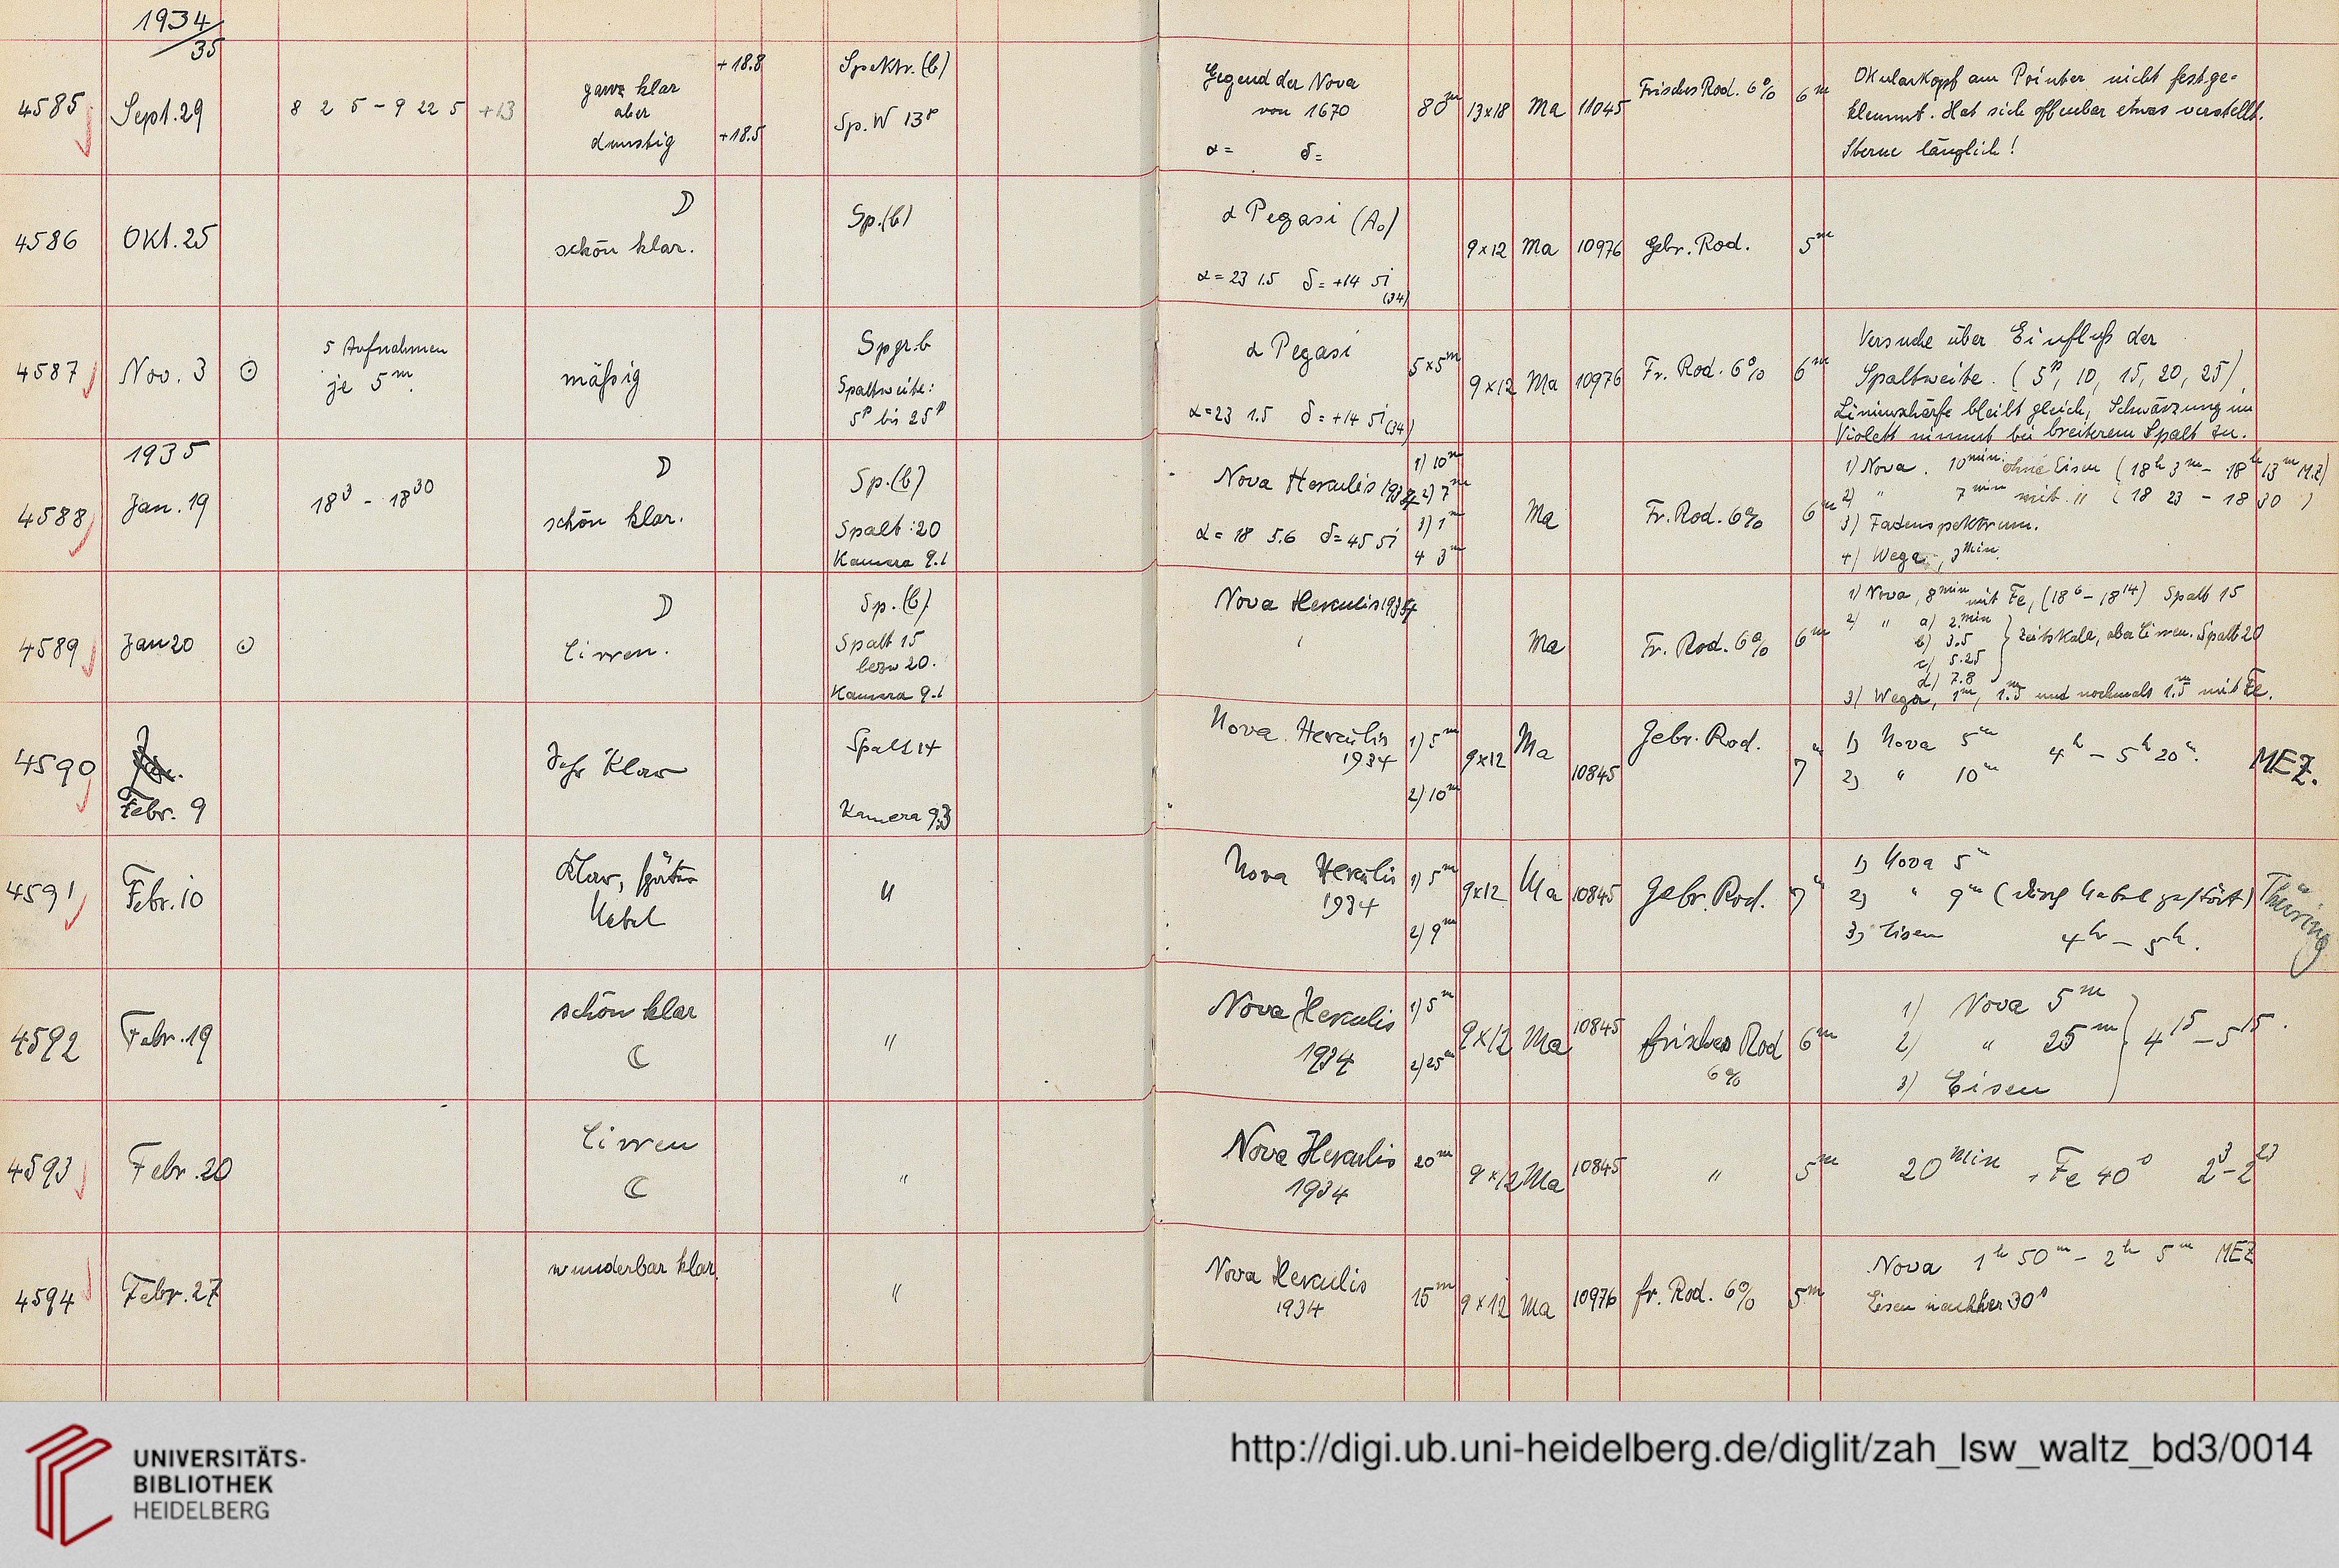 1934/35
4585 Sept. 29 8 2 5 – 9 22 5 +13 ganz klar aber dunstig +18.8 +18.5 Spektr. (b) Sp. W 13µ Gegend der Nova von 1670 α = δ = 80m 13x18 Ma 11045 Frisches Rod. 6% 6m
Okularkopf am Pointer nicht festge-
klemmt. Hat sich offenbar etwas verstellt.
Sterne länglich!
4586 Okt. 25 schön klar. Sp. (b) α Pegasi (A0) α = 23 1.5 δ = +14 51 (34) 9x12 Ma 10976 Gebr. Rod. 5m
4587 Nov. 3 ⊙ 5 Aufnahmen je 5m. mäßig Spgr. b Spaltweite: 5µ bis 25µ α Pegasi α = 23 1.5 δ = +14 51 (34) 5x5m 9x12 Ma 10976 Fr. Rod. 6% 6m
Versuche über Einfluß der
Spaltweite. (5µ, 10, 15, 20, 25),
Linienschärfe bleibt gleich, Schwärzung im
Violett nimmt bei breiterem Spalt zu.
1935
4588 Jan. 19 18 3 – 18 30 schön klar. Sp. (b) Spalt: 20 Kamera 9.1 Nova Herculis 1934 α = 18 5.6 δ = 45 51 1) 10m 2) 7m 3) 1m 4 3m Ma Fr. Rod. 6% 6m
1) Nova. 10min ohne Eisen (18h 3m – 18h 13m M.Z)
2) " 7min mit " (18 23 – 18 30 )
3) Fadenspektrum.
4) Wega, 3Min.
4589 Jan 20 ⊙ Cirren. Sp. (b) Spalt 15 bezw 20. Kamera 9.1 Nova Herculis 1934 Ma Fr. Rod. 6% 6m
1) Nova, 8min mit Fe, (18 6 – 18 14) Spalt 15
2) " a) 2min
b) 3.5
c) 5.25
d) 7.8
Zeitskala, aber Cirren. Spalt 20
3) Wega, 1m, 1.5m und nochmals 1.5m mit Fe.
4590 Febr. 9 Sehr klar Spalt 14 Kamera 93 Nova Herculis 1934 1) 5m 2) 10m 9x12 Ma 10845 Gebr. Rod. 7m
1) Nova 5m 4h – 5h 20m. MEZ.
2) " 10m
4591 Febr. 10 Klar, später Nebel " Nova Herculis 1934 1) 5m 2) 9m 9x12 Ma 10845 Gebr. Rod. 7m
1) Nova 5m
2) " 9m (durch Nebel gestört) Thüring
3) Eisen 4h – 5h.
4592 Febr. 19 schön klar ☾ " Nova Herculis 1934 1) 5m 2) 25m 9x12 Ma 10845 frisches Rod 6% 6m
1) Nova 5m
2) " 25m 4 15 – 5 15.
3) Eisen
4593 Febr. 20 Cirren ☾ " Nova Herculis 1934 20m 9x12 Ma 10845 " 5m 20Min, Fe 40s 2 3 – 2 23
4594 Febr. 27 wunderbar klar. " Nova Herculis 1934 15m 9x12 Ma 10976 fr. Rod. 6% 5m
Nova 1h 50m – 2h 5m MEZ
Eisen nachher 30s
UNIVERSITÄTS-
BIBLIOTHEK
HEIDELBERG
http://digi.ub.uni-heidelberg.de/diglit/zah_lsw_waltz_bd3/0014